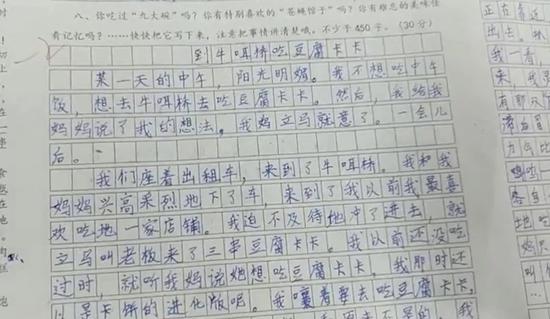 八、你吃过“九大碗”吗？你有特别喜欢的“苍蝇馆子”吗？你有难忘的美味佳
肴记忆吗？……快快把它写下来，注意把事情讲清楚哦。不少于450字。（30分）
到牛咡桥吃豆腐卡卡
某一天的中午，阳光明媚。我不想吃中午
饭，想去牛咡桥去吃豆腐卡卡。然后，我给我
妈妈说了我的想法。我妈立马就意了。一会儿
后。
我们座着出租车，来到了牛咡桥。我和我
妈妈兴高采烈地下了车，来到了我以前我最喜
欢吃地一家店铺。我迫不及待地冲了进去，就
立马叫老板来了三串豆腐卡卡。我以前还没吃
过时，就听我妈说她想吃豆腐卡卡，我那时还
以是卡饼的进化版呢。我嚷着要去吃豆腐卡卡，
不是的，我